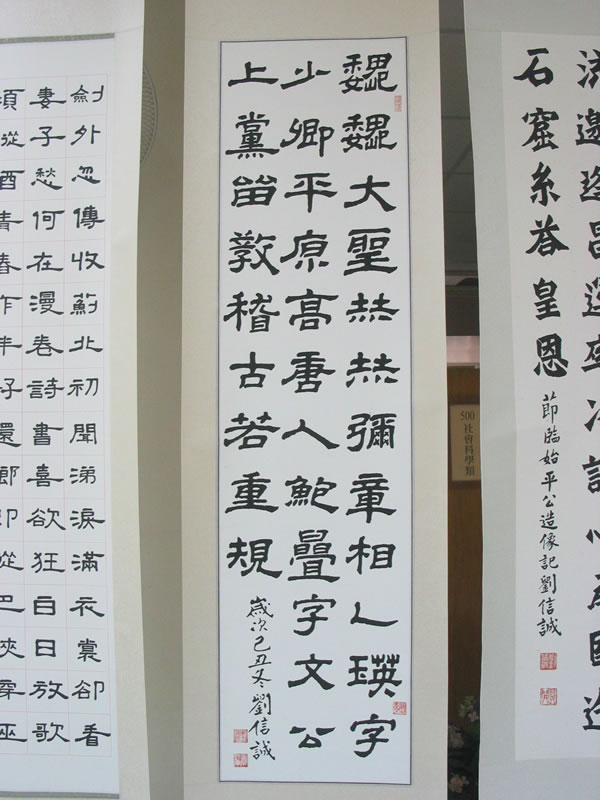 流邀逢昌運率誠心爲國造
石窟糸荅皇恩
節臨始平公造像記劉信誠
500
社會科學類
魏魏大聖赫赫彌章相乙瑛字
少卿平原高唐人鮑疊字文公
上黨留教稽古若重規
歲次己丑冬劉信誠
劍外忽傳收薊北初聞涕淚滿衣裳卻看
妻子愁何在漫卷詩書喜欲狂白日放歌
須縱酒青春作伴好還鄉即從巴峽穿巫